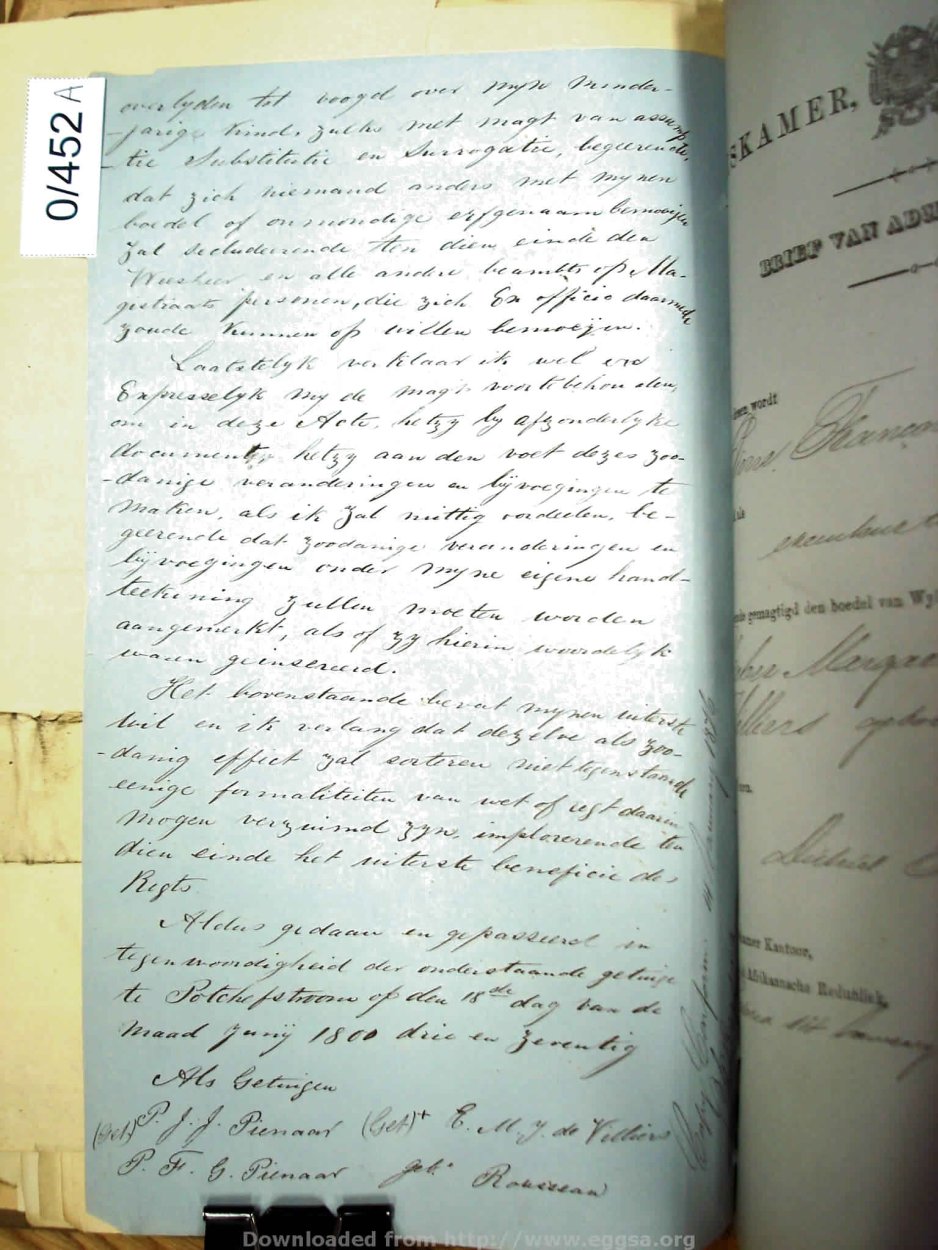 0/452 A
overlyden tot voogd over myn minder-
-jarige kind, zulks met magt van assump-
-tie Substitutie en Surrogatie, begeerende,
dat zich niemand anders met mynen
boedel of onmondige erfgenaam bemoeijen
zal secludeerende ten dien einde den
Weesheer en alle andere beambte of Ma-
gistraats personen, die zich Ex officio daarmede
zoude kunnen of willen bemoeijen.
Laatstelyk verklaar ik wel en
Expresselyk my de magt voortebehouden,
om in deze Acte, hetzy by afzonderlyke
documenten, hetzy aan den voet dezes zoo-
-danige veranderingen en byvoegingen te
maken, als ik zal nuttig oordeelen, be-
geerende dat zoodanige veranderingen en
byvoegingen onder myne eigene hand-
teekening zullen moeten worden
aangemerkt, als of zy hierin woordelyk
waren geinsereerd.
Het bovenstaande bevat mynen uiterste
wil en ik verlang dat dezelve als zoo-
-danig effect zal sorteren niettegenstaande
eenige formaliteiten van wet of regt daarin
mogen verzuimd zyn, imploreerende ten
dien einde het uiterste beneficie des
Regts
Aldus gedaan en gepasseerd in
tegenwoordigheid der onderstaande getuige
te Potchefstroom op den 18de dag van de
maad Junij 1800 drie en zeventig
Als Getuigen
(Get) P. J. J. Pienaar (Get) + E. M. J. de Villiers
P. F. G. Pienaar geb. Rousseau
Copy Conform January 1876
SKAMER,
BRIEF VAN ADM
wordt
als
gemagtigd den boedel van Wyl
Margar
Villiers
Kantoor,
Afrikaansche Republiek,
Downloaded from http://www.eggsa.org